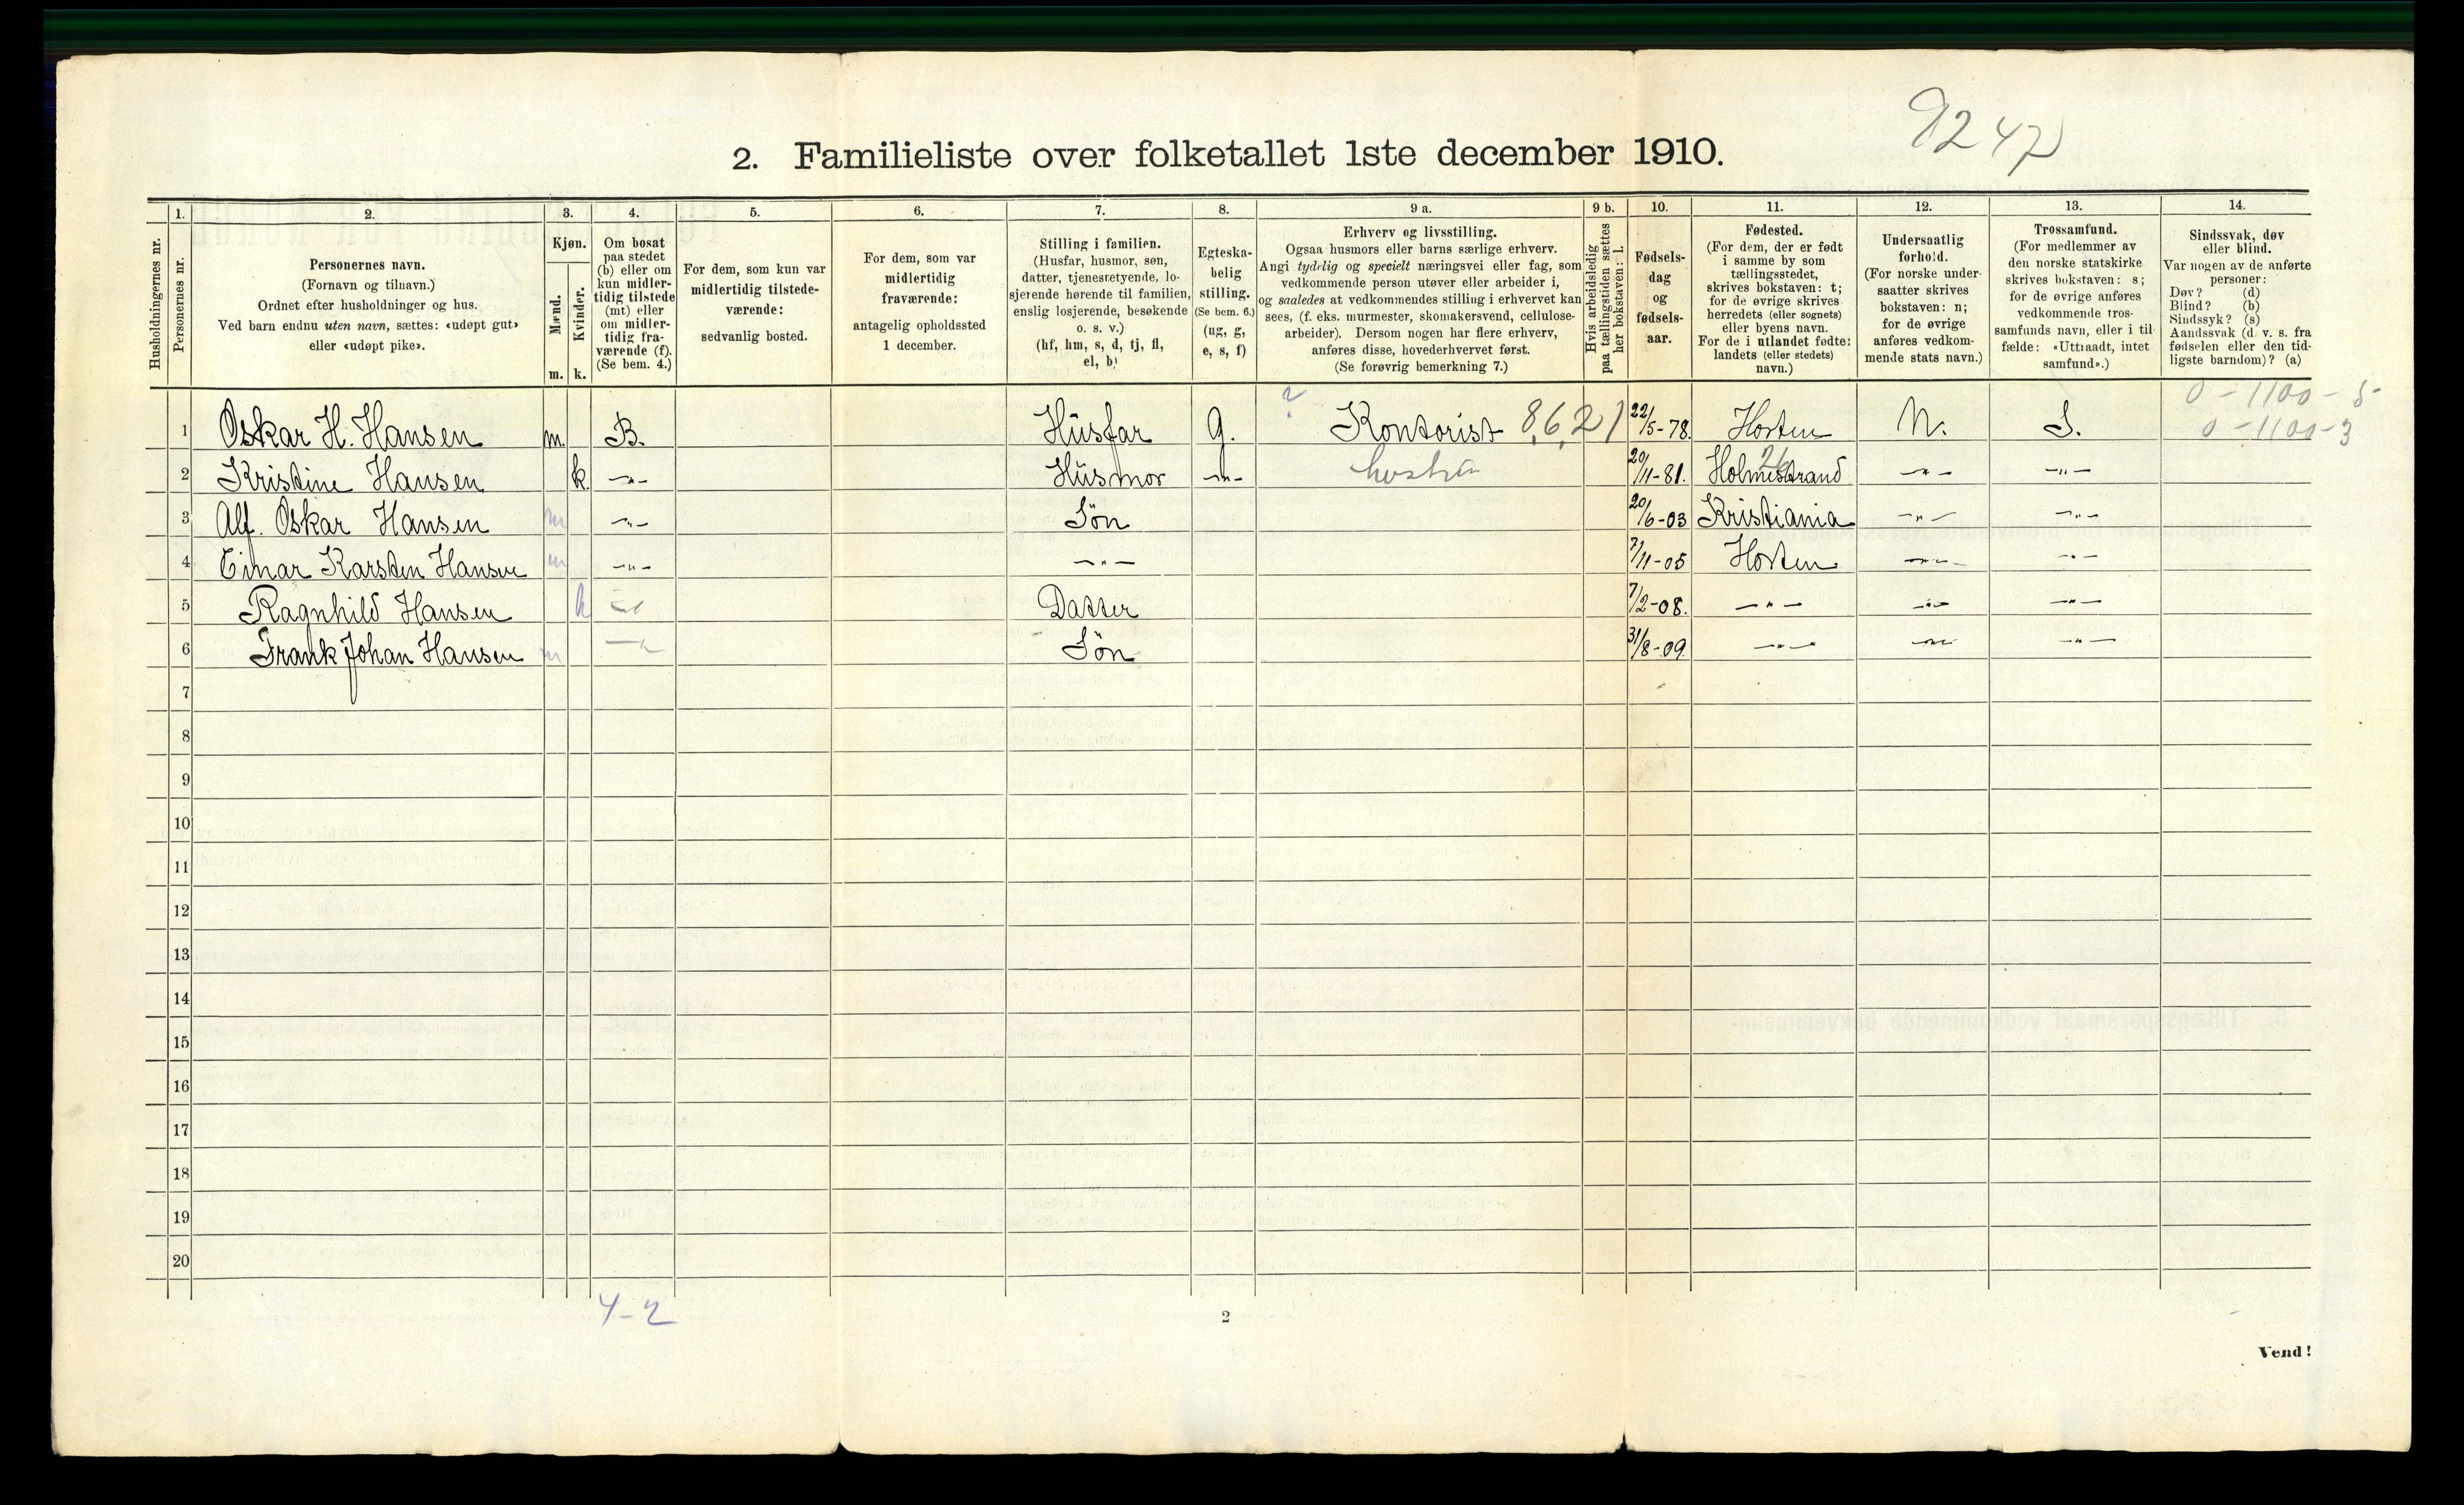 9247
2. Familieliste over folketallet 1ste december 1910.
Husholdningernes nr.
1.
Personernes nr.
2.
Personernes navn.
(Fornavn og tilnavn.)
Ordnet efter husholdninger og hus.
Ved barn endnu uten navn, sættes: «udøpt gut»
eller «udøpt pike».
3.
Kjøn.
Mænd.
Kvinder.
m. k.
4.
Om bosat
paa stedet
(b) eller om
kun midler-
tidig tilstede
(mt) eller
om midler-
tidig fra-
værende (f).
(Se bem. 4.)
5.
For dem, som kun var
midlertidig tilstede-
værende:
sedvanlig bosted.
6.
For dem, som var
midlertidig
fraværende:
antagelig opholdssted
1 december.
7.
Stilling i familien.
(Husfar, husmor, søn,
datter, tjenestyende, lo-
sjerende hørende til familien,
enslig losjerende, besøkende
o. s. v.)
(hf, hm, s, d, tj, fl,
el, b)
8.
Egteska-
belig
stilling.
(Se bem. 6.)
(ug, g,
e, s, f)
9 a.
Erhverv og livsstilling.
Ogsaa husmors eller barns særlige erhverv.
Angi tydelig og specielt næringsvei eller fag, som
vedkommende person utøver eller arbeider i,
og saaledes at vedkommendes stilling i erhvervet kan
sees, (f. eks. murmester, skomakersvend, cellulose-
arbeider). Dersom nogen har flere erhverv,
anføres disse, hovederhvervet først.
(Se forøvrig bemerkning 7.)
9 b.
Hvis arbeidsledig
paa tællingstiden sættes
her bokstaven: l.
10.
Fødsels-
dag
og
fødsels-
aar.
11.
Fødested.
(For dem, der er født
i samme by som
tællingsstedet,
skrives bokstaven: t;
for de øvrige skrives
herredets (eller sognets)
eller byens navn.
For de i utlandet fødte:
landets (eller stedets)
navn.)
12.
Undersaatlig
forhold.
(For norske under-
saatter skrives
bokstaven: n;
for de øvrige
anføres vedkom-
mende stats navn.)
13.
Trossamfund.
(For medlemmer av
den norske statskirke
skrives bokstaven: s;
for de øvrige anføres
vedkommende tros-
samfunds navn, eller i til-
fælde: «Uttraadt, intet
samfund».)
14.
Sindssvak, døv
eller blind.
Var nogen av de anførte
personer:
Døv? (d)
Blind? (b)
Sindssyk? (s)
Aandssvak (d. v. s. fra
fødselen eller den tid-
ligste barndom)? (a)
0 - 1100 - 5
1 Oskar H. Hansen m. B. Husfar G. ? Kontorist 8,6,21 22/5-78. Horten N. S. 0-1100-3
2 Kristine Hansen k. -„- Husmor -„- hustru 20/11-81. Holmestrand 26 -„- -„-
3 Alf. Oskar Hansen m -„- Søn 20/6-03 Kristiania -„- -„-
4 Einar Karsten Hansen m -„- -„- 7/11-05 Horten -„- -„-
5 Ragnhild Hansen k -„- Datter 7/2-08. -„- -„- -„-
6 Frank Johan Hansen m -„- Søn 31/8-09. -„- -„- -„-
7
8
9
10
11
12
13
14
15
16
17
18
19
20
4-2
2
Vend!